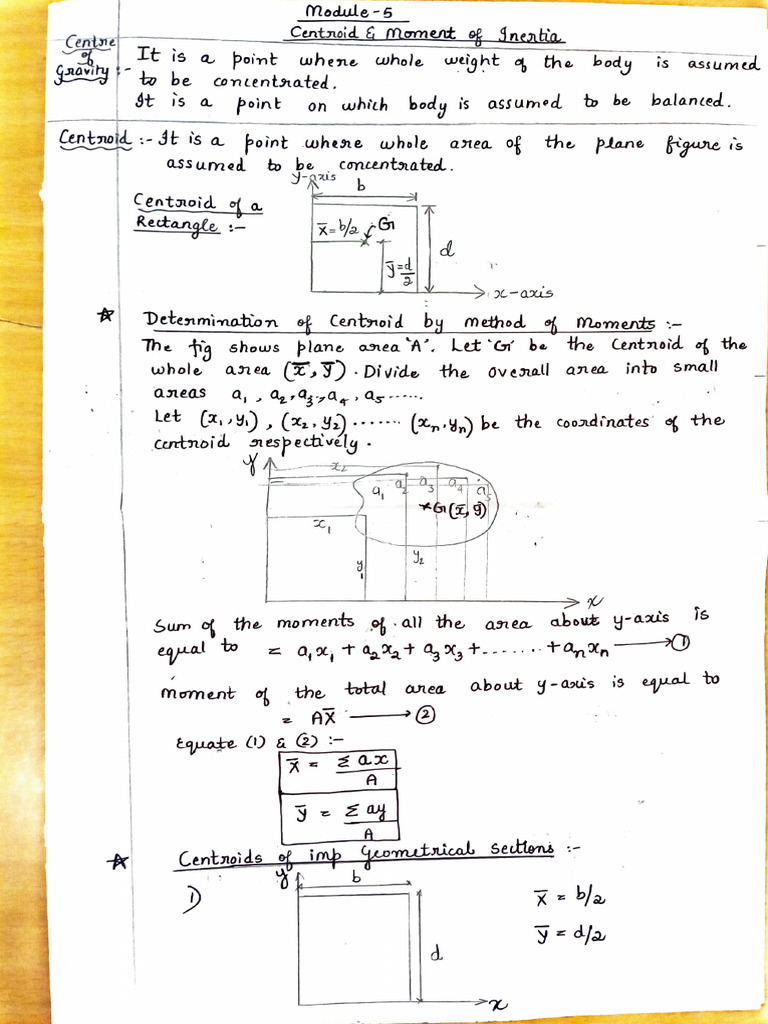 Module-5
Centroid & Moment of Inertia
Centre of Gravity :- It is a point where whole weight of the body is assumed
to be concentrated.
It is a point on which body is assumed to be balanced.
Centroid :- It is a point where whole area of the plane figure is
assumed to be concentrated.
y-axis
b
Centroid of a
Rectangle :-
x̄ = b/2
G
ȳ = d/2
d
x-axis
Determination of Centroid by Method of Moments :-
The fig shows plane area 'A'. Let 'G' be the Centroid of the
whole area (x̄, ȳ). Divide the overall area into small
areas a₁, a₂, a₃, a₄, a₅ ......
Let (x₁, y₁), (x₂, y₂) ....... (xₙ, yₙ) be the coordinates of the
centroid respectively.
Y
x₂
a₁ a₂ a₃ a₄ a₅
G(x̄, ȳ)
x₁
y₁
y₂
x
Sum of the moments of all the area about y-axis is
equal to = a₁x₁ + a₂x₂ + a₃x₃ + ....... + aₙxₙ → ①
Moment of the total area about y-axis is equal to
= Ax̄ → ②
Equate (1) & (2) :-
x̄ = Σax / A
ȳ = Σay / A
Centroids of imp Geometrical sections :-
y
b
1)
x̄ = b/2
ȳ = d/2
d
x